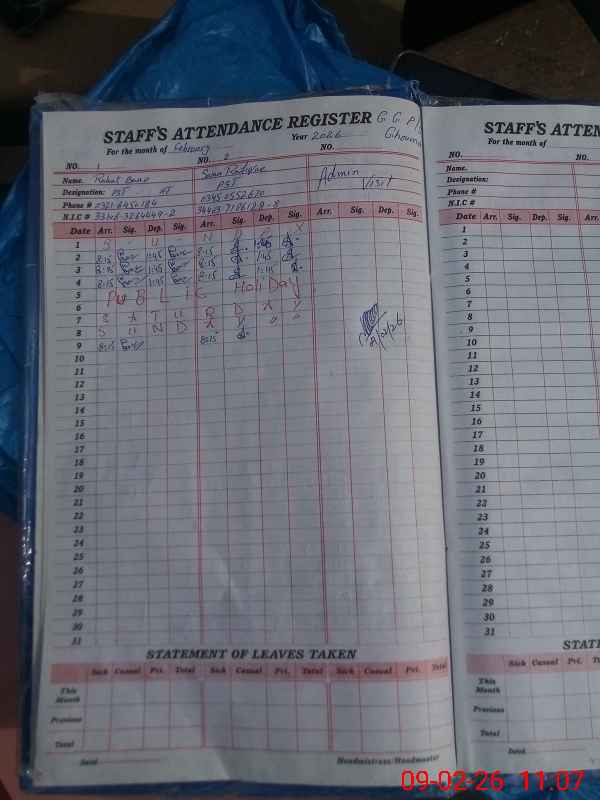 STAFF'S ATTENDANCE REGISTER G. G. P/S
For the month of February Year 2026
NO. 1 NO. 2 NO.
Name. Rahat Bano Admin
Designation: PST PST Visit
Phone # 0345 0552670
N.I.C #
Date Arr. Sig. Dep. Sig. Arr. Sig. Dep. Sig. Arr. Sig. Dep. Sig.
1 S U N D A Y
2 8:15 1:45 8:15 1:45
3 8:15 1:45 8:15 1:45
4 8:15 1:45 8:15 1:15
5 PUBLIC Holi Day
6
7 S A T U R D A Y
8 S U N D A Y 9/02/26
9 8:15 8:15
10
11
12
13
14
15
16
17
18
19
20
21
22
23
24
25
26
27
28
29
30
31
STATEMENT OF LEAVES TAKEN
Sick Casual Pri. Total Sick Casual Pri. Total Sick Casual Pri. Total
This Month
Previous
Total
Dated Headmistress/Headmaster
STAFF'S ATTEN
For the month of
NO.
Name.
Designation:
Phone #
N.I.C #
Date Arr. Sig. Dep. Sig.
1
2
3
4
5
6
7
8
9
10
11
12
13
14
15
16
17
18
19
20
21
22
23
24
25
26
27
28
29
30
31
STATE
Sick Casual Pri.
This Month
Previous
Total
Dated
09-02-26 11:07